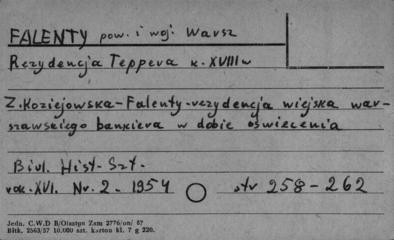 FALENTY pow. i woj. Warsz
Rezydencja Teppera k. XVIII w
Z. Koziejowska - Falenty - rezydencja wiejska war-
szawskiego bankiera w dobie oświecenia
Biul. Hist. Szt.
rok. XVI. Nr. 2 - 1954 str 258 - 262
Jedn. C.W.D B/Olsztyn Zam 2776/on/ 57
Bltk. 2563/57 10.000 szt. karton kl. 7 g 220.